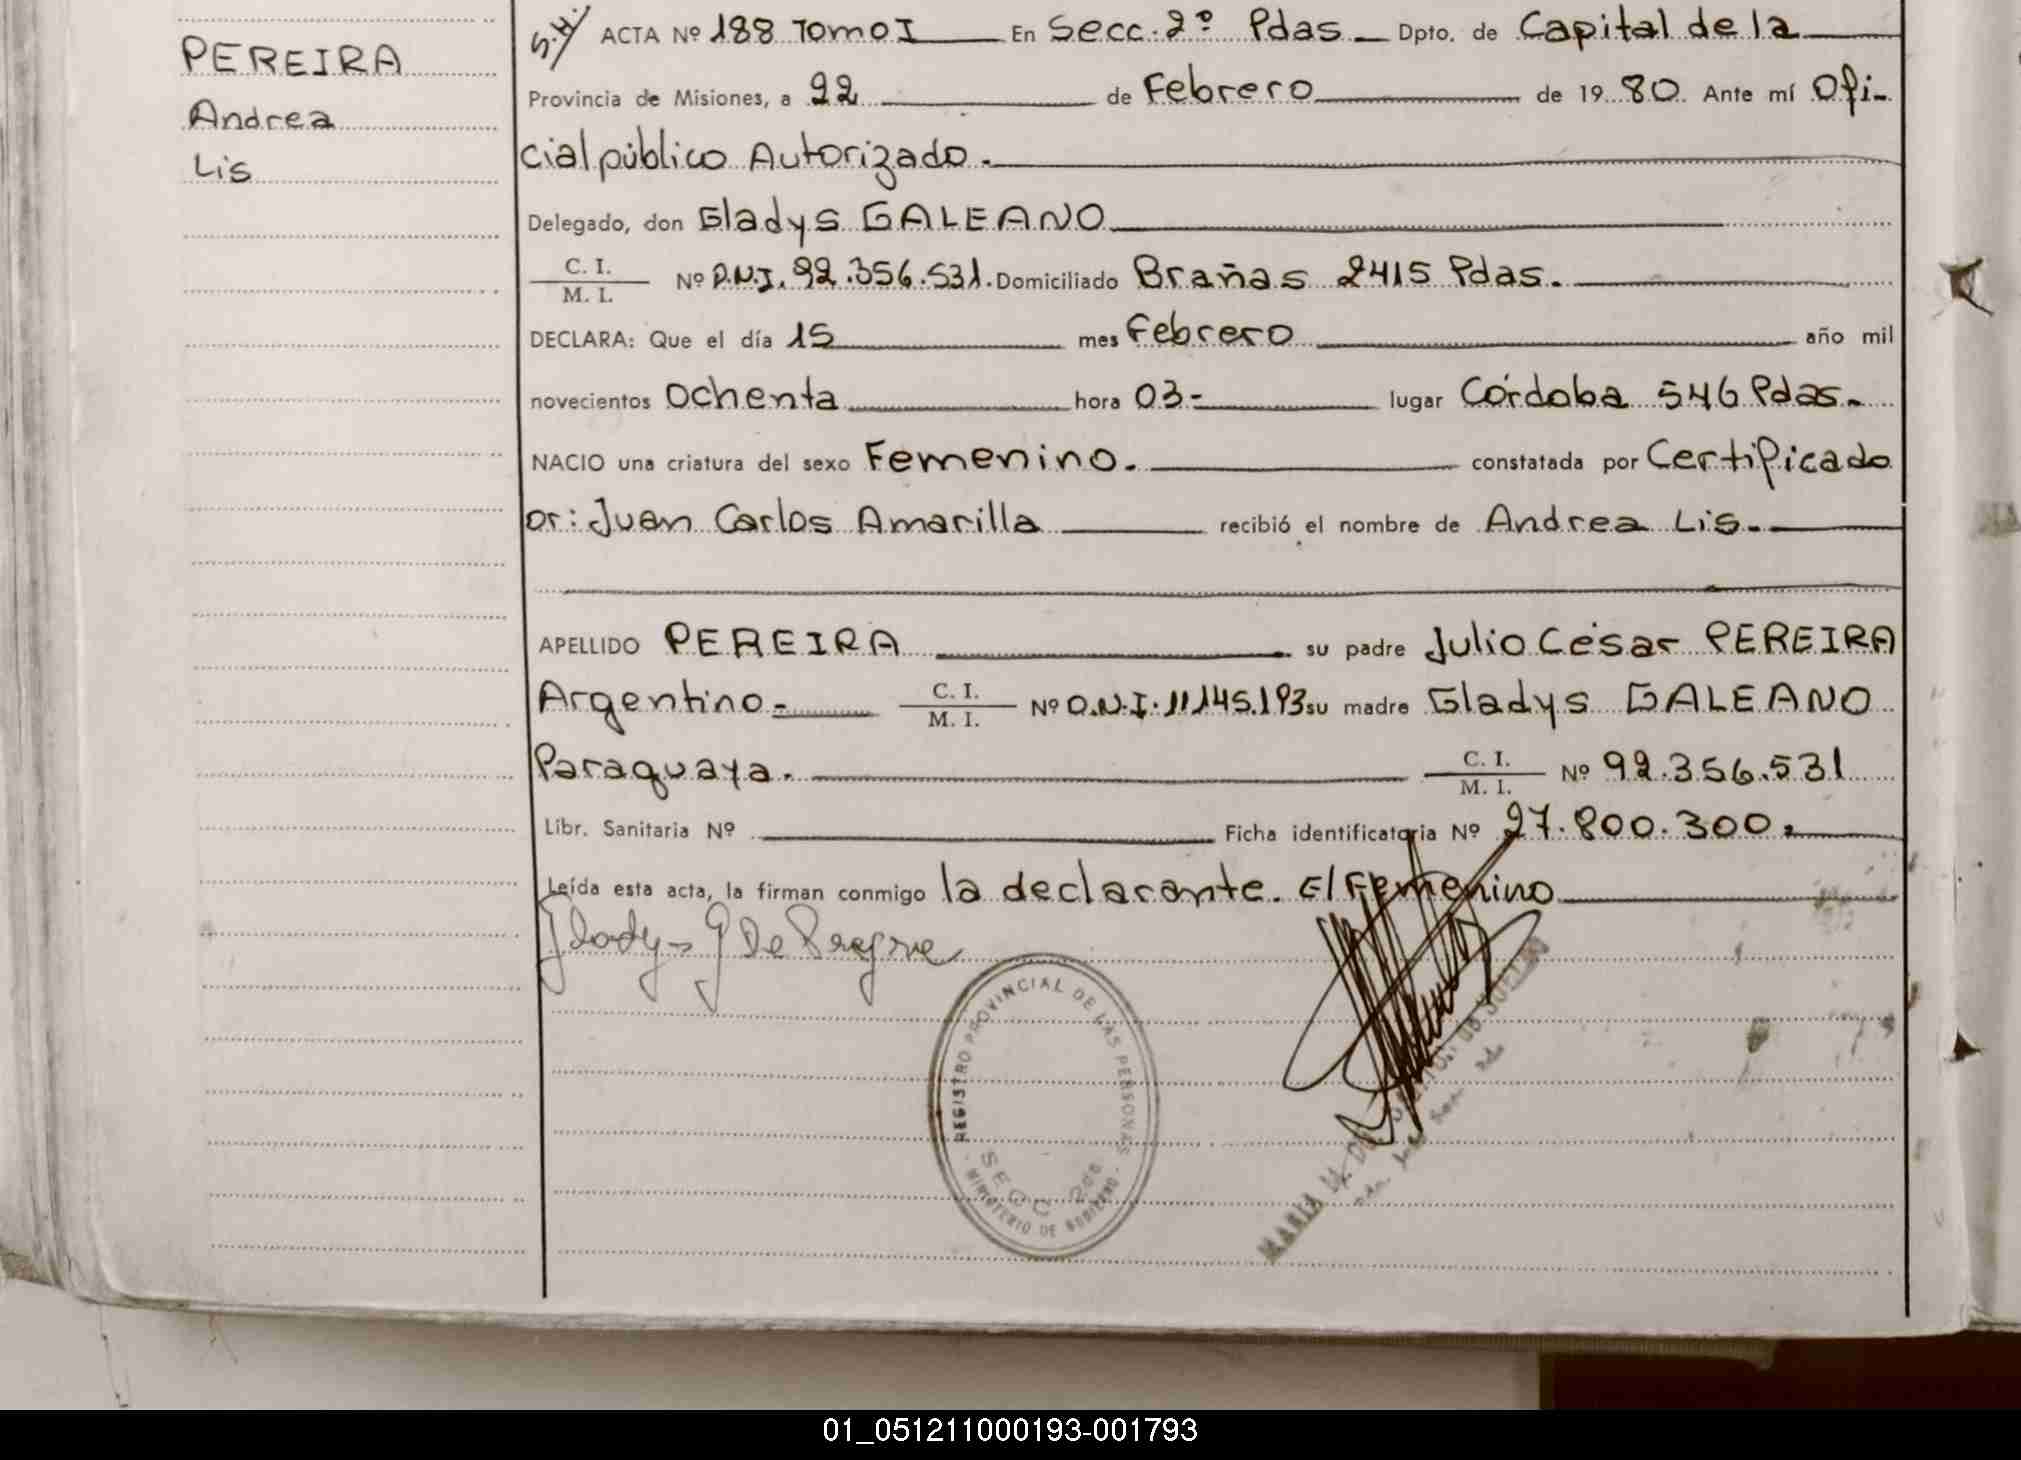 PEREIRA
Andrea
Lis
S.H/ ACTA Nº 188 Tomo I En Secc. 2º Pdas Dpto. de Capital de la
Provincia de Misiones, a 22 de Febrero de 19 80 Ante mí Ofi-
cial público Autorizado.
Delegado, don Gladys GALEANO
C. I.
M. I. Nº D.N.I. 92.356.531. Domiciliado Brañas 2415 Pdas.
DECLARA: Que el día 15 mes Febrero año mil
novecientos Ochenta hora 03- lugar Córdoba 546 Pdas.
NACIO una criatura del sexo Femenino. constatada por Certificado
Dr: Juan Carlos Amarilla recibió el nombre de Andrea Lis.
APELLIDO PEREIRA su padre Julio César PEREIRA
Argentino- C. I.
M. I. Nº D.N.I. 11.145.193 su madre Gladys GALEANO
Paraguaya. C. I.
M. I. Nº 92.356.531
Libr. Sanitaria Nº Ficha identificatoria Nº 27.800.300.
Leída esta acta, la firman conmigo la declarante. El Femenino
Gladys G De
REGISTRO PROVINCIAL DE LAS PERSONAS
SECC 2da
MINISTERIO DE GOBIERNO
MARIA
01_051211000193-001793